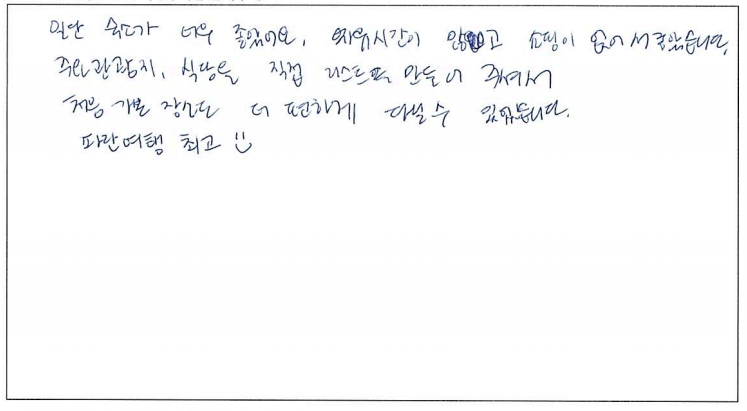 일단 숙소가 너무 좋았어요, 자유시간이 많고 쇼핑이 없어서 좋았습니다.
주요관광지, 식당을 직접 리스트로 만들어 주셔서
처음 가본 장소도 더 편하게 다닐 수 있었습니다.
파란여행 최고